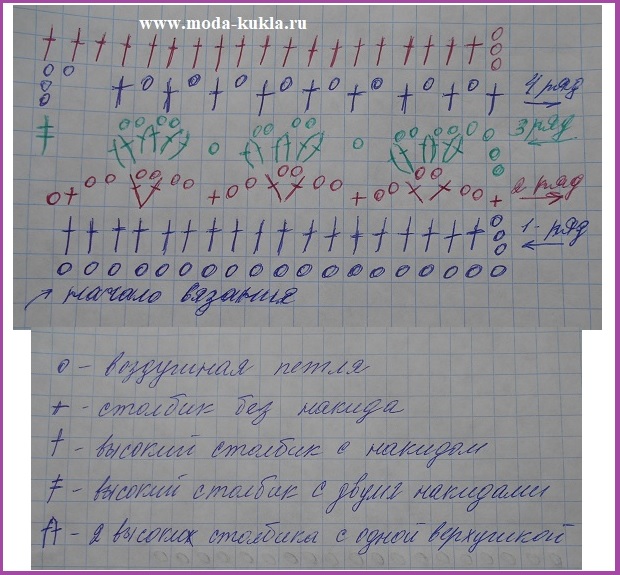 www.moda-kukla.ru
4 ряд
3 ряд
2 ряд
1-ряд
начало вязания
o - воздушная петля
+ - столбик без накида
† - высокий столбик с накидом
‡ - высокий столбик с двумя накидами
- 2 высоких столбика с одной верхушкой